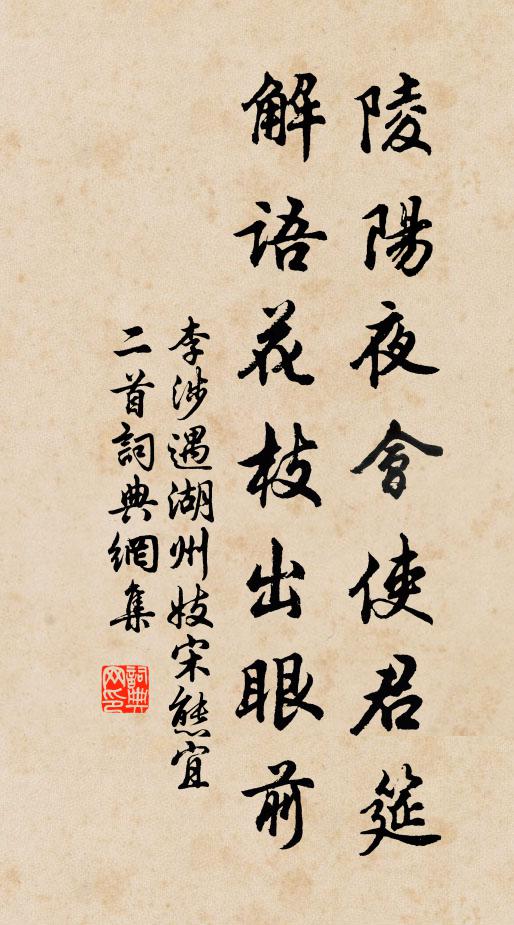 陵陽夜會使君筵
解語花枝出眼前
李涉遇湖州妓宋態宜
二首詞典網集
詞典
网印